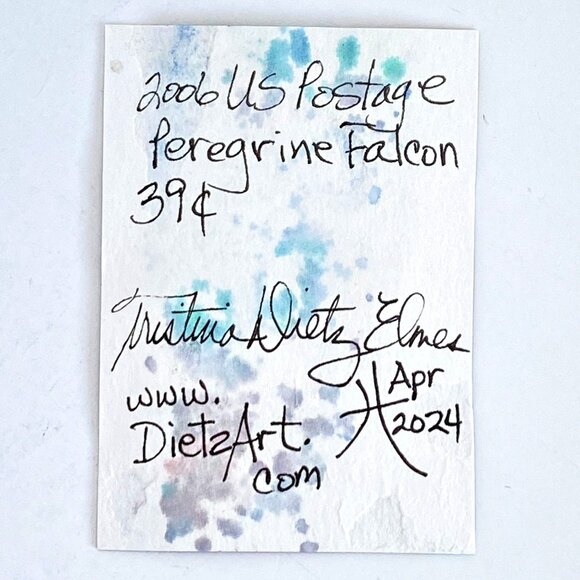 2006 US Postage
Peregrine Falcon
39¢
Tristina Dietz Elmes
www.
DietzArt.
com
Apr
2024